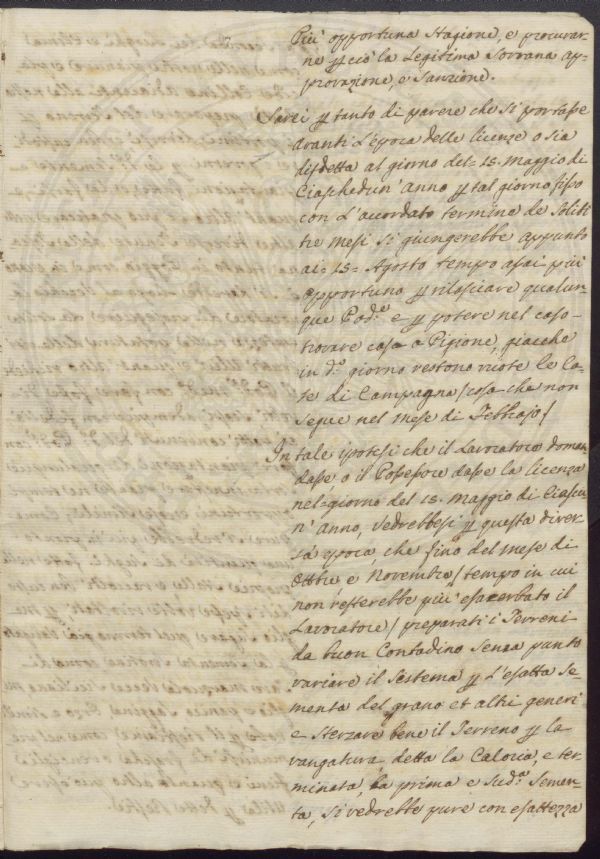 Più opportuna Stagione, e procurar-
ne p ciò la Legitima Sovrana ap-
provazione, e Sanzione.
Sarei p tanto di parere che si portasse
avanti L'epoca delle licenze o sia
disdetta al giorno del= 15. Maggio di
Ciaschedun' anno p tal giorno fisso
con L'acordato termine de Soliti
tre mesi si giungerebbe appunto
ai= 15= Agosto tempo assai più
opportuno p rilasciare qualun-
que Pod.e e p potere nel caso-
trovare casa a Pigione, giacchè
in d.o giorno restono vuote le Ca-
se di Campagna / cosa che non
segue nel mese di Febbrajo /
In tale ipotesi che il Lavoratore doman-
dasse o il Possessore dasse la licenza
nel= giorno del 15. Maggio di Ciascu-
n' anno, Vedrebbesi p questa diver-
sa epoca, che fino del mese di
Ottbre, e Novembre / tempo in cui
non resterebbe più esacerbato il
Lavoratore / preparati i Terreni
da buon Contadino Senza punto
variare il Sistema p L'esatta se-
menta del grano et altri generi
e Sterzare bene il Terreno p la
vangatura detta la Caloria, e ter-
minata, la prima e Sud.a Semen-
ta, si vedrebbe pure con esattezza